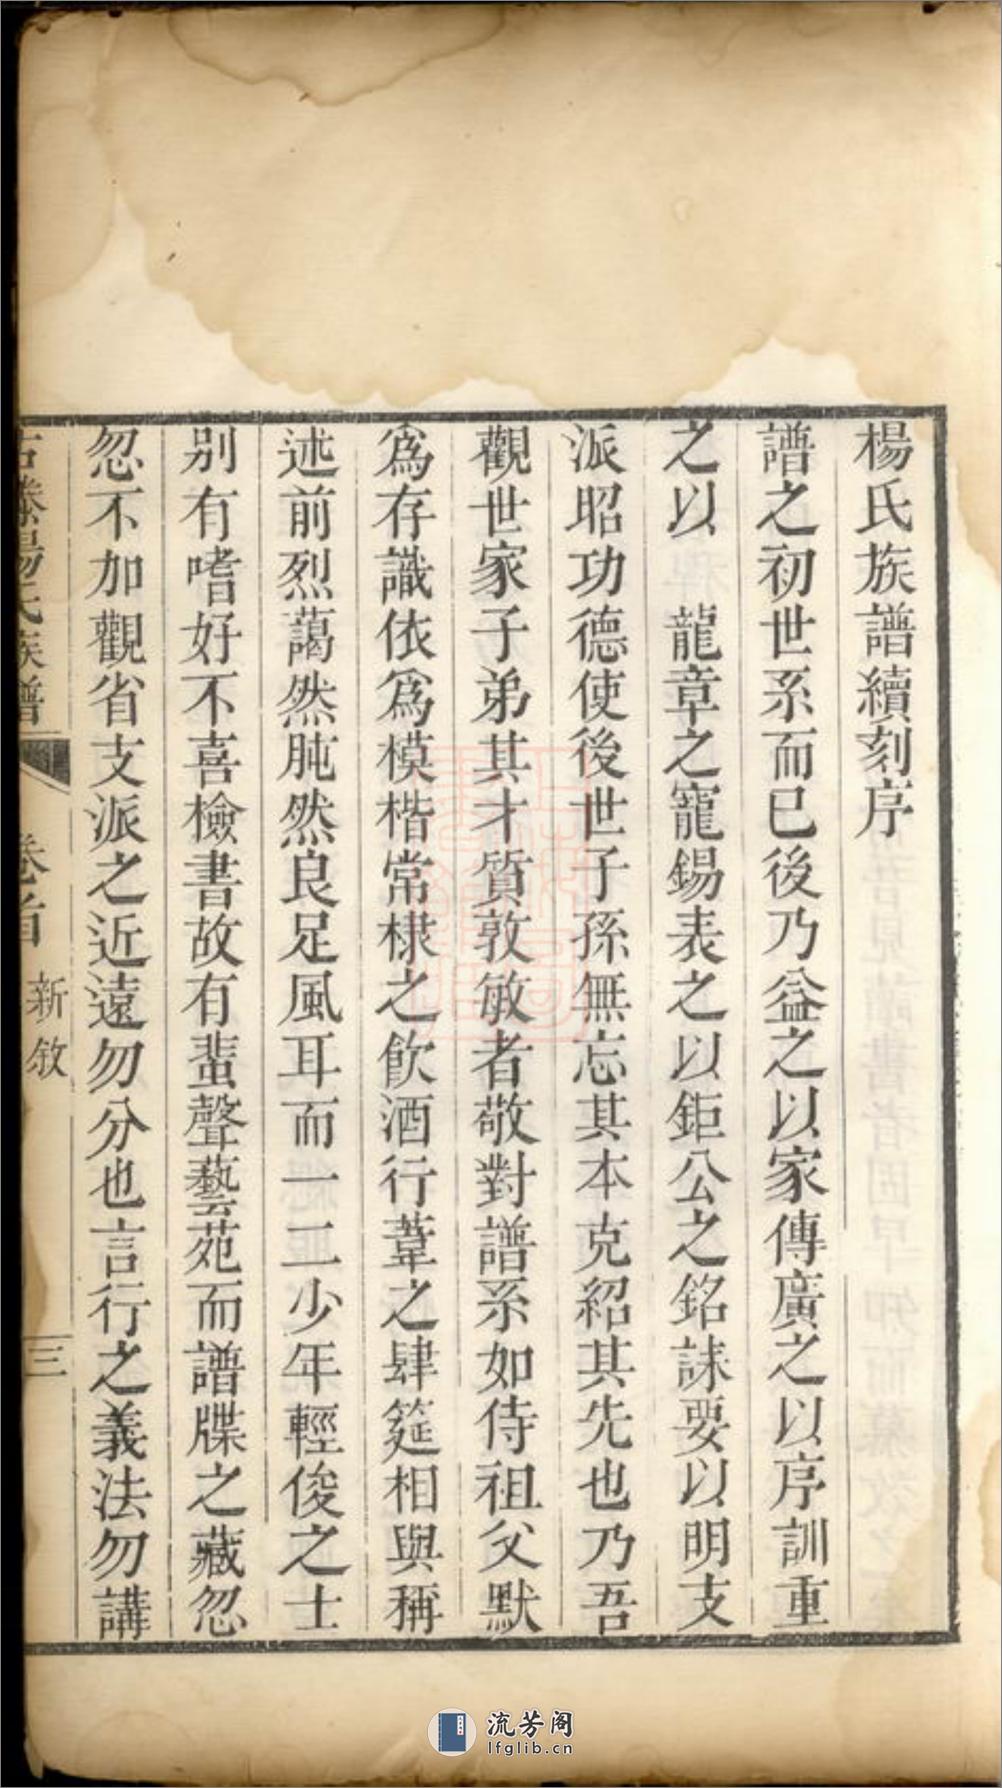 楊氏族譜續刻序
譜之初世系而已後乃益之以家傳廣之以序訓重
之以　龍章之寵錫表之以鉅公之銘誄要以明支
派昭功德使後世子孫無忘其本克紹其先也乃吾
觀世家子弟其才質敦敏者敬對譜系如侍祖父默
爲存識依爲模楷常棣之飲酒行葦之肆筵相與稱
述前烈藹然肫然良足風耳而一二少年輕俊之士
别有嗜好不喜檢書故有蜚聲藝苑而譜牒之藏忽
忽不加觀省支派之近遠勿分也言行之義法勿講
古滕楊氏族譜　卷首　新敘　三
流芳阁
lfglib.cn